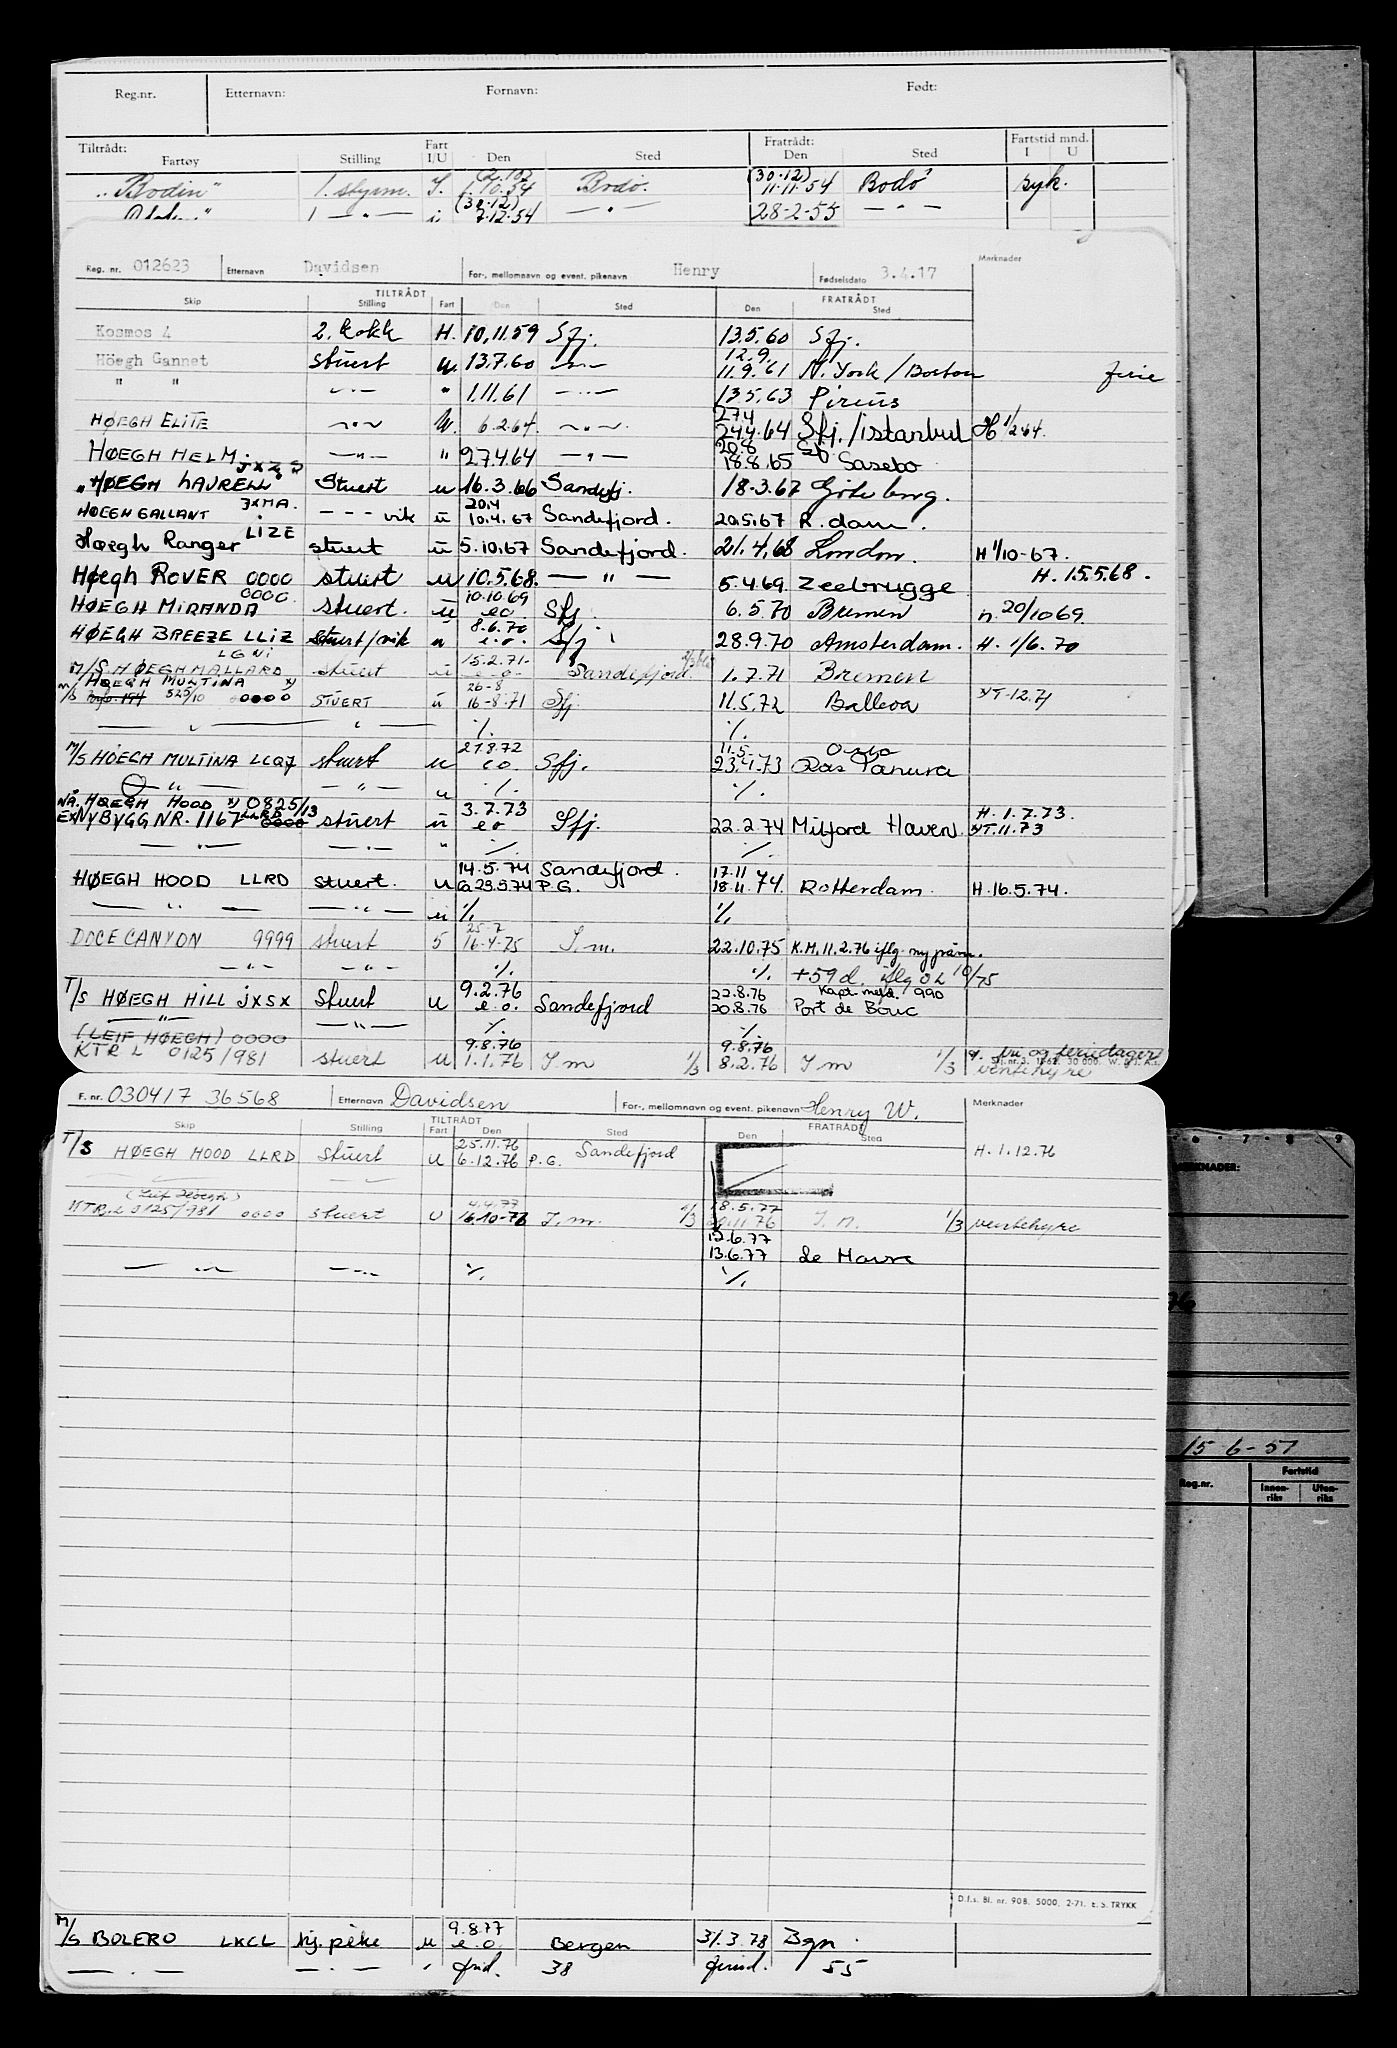 Reg.nr. Etternavn: Fornavn: Født:
Tiltrådt: Fartøy Stilling Fart I/U Den Sted Fratrådt: Den Sted Fartstid mnd. I U
"Bodin" 1. styrm. I. 1.10.54 Bodø. (30-12) 11-11-54 Bodø syk.
1 — " — i (30-12) 7-12-54 — " — 28-2-55 — " —
Reg. nr. 012623 Etternavn Davidsen For-, mellomnavn og event. pikenavn Henry Fødselsdato 3.4.17 Merknader
TILTRÅDT FRATRÅDT
Skip Stilling Fart Den Sted Den Sted
Kosmos 4 2. kokk H. 10.11.59 Sfj. 13.5.60 Sfj.
Höegh Gannet stuert u. 13.7.60 —"— 12.9. 11.9.61 N. York / Boston ferie
" " —"— " 1.11.61 —"— 13.5.63 Pireus
HØEGH ELITE —"— U. 6.2.64. —"— 27.4 24.4.64 Sfj./istanbul H 1/2 64.
HØEGH HELM. —"— " 27.4.64 —"— 20.8 18.8.65 Sasebo
"HØEGH LAURELL" JXZS Stuert u 16.3.66 Sandefj. 18-3.67 Göteborg.
HØEGH GALLANT JXMA. - - - vik ü 20.4 10.4.67 Sandefjord. 20.5.67 R.dam.
Høegh Ranger LIZE stuert ü 5.10.67 Sandefjord. 21.4.68 London. H 1/10-67.
Høegh ROVER 0000 stuert u 10.5.68. — " — 5.4.69. Zeebrugge H. 15.5.68.
HØEGH MIRANDA 0000. stuert. ü 10.10.69 e.o. Sfj. 6.5.70 Bremen n. 20/10 69
HØEGH BREEZE LLIZ stuert/vik u 8.6.70 e.o. Sfj. 28.9.70 Amsterdam. H. 1/6.70
M/S. HØEGH MALLARD LGNI stuert ü 15.2.71- e-o- Sandefjord 1.7.71 Bremen
M/S HØEGH MULTINA 525/10 00000 STUERT ü 26-8 16-8-71 Sfj. 11.5.72 Balboa x)T-12.71
— " — " — ./. ./.
M/S HØEGH MULTINA LCQ7 stuert u 27.8.72 e.o. Sfj. 11.5.- 23.4.73 Oslo Ras Tanura
— " — — " — u ./. ./.
NÅ. HØEGH HOOD x) 0825/13
EX NYBYGG NR. 1167 LLRD 0000 stuert ü 3.7.73 e o Sfj. 22.2.74 Milford Haven. H. 1.7.73. x)T.11.73
— " — — " — " ./. ./.
HØEGH HOOD LLRD stuert. u 14.5.74 Sandefjord. 23.5.74 P.G. 17.11 18.11.74. Rotterdam. H.16.5.74.
— " — — " — u ./. ./.
DOCECANYON 9999 stuert 5 25-7 16-4-75 I.m. 22.10.75 K.M. 11.2.76 iflg. ny
— " — — " — ./. ./. +59 d. iflg 10/75
T/S HØEGH HILL JXSX Stuert u 9.2.76 e.o. Sandefjord 22.8.76 Kapt. meld. 990 20.8.76 Port de Bouc
— " — — " — ./. ./.
(LEIF HØEGH) 0000
KTR L 0125/981 stuert u 9.8.76 1.1.76 I m 1/3 9.8.76 8.2.76 I m 1/3 og feriedager ventehyre
Skj. nr. 3. 1962. 30 000. W.
F. nr. 030417 36568 Etternavn Davidsen For-, mellomnavn og event. pikenavn Henry W. Merknader
TILTRÅDT FRATRÅDT
Skip Stilling Fart Den Sted Den Sted
T/S HØEGH HOOD LLRD Stuert u 25.11.76 6.12.76 P.G. Sandefjord H. 1.12.76
(Leif Höegh)
KTR. L 0125/981 0000 stuert U 4.4.77 16.10-76 I.m. 1/3 18.5.77 I.M. 1/3 ventehyre
13.6.77
13.6.77 Le Havre
— " — — " — ./. ./.
15 6-51
Reg.nr. Fartstid Innen-riks Uten-riks
MERKNADER:
6 · 7 · 8 · 9
D.f.s. Bl. nr. 908. 5000. 2-71. E. S. TRYKK
M/S BOLERO LKCL hj. pike u 9.8.77 e.o. Bergen 31.3.78 Bgn.
— . — — . — 38 55